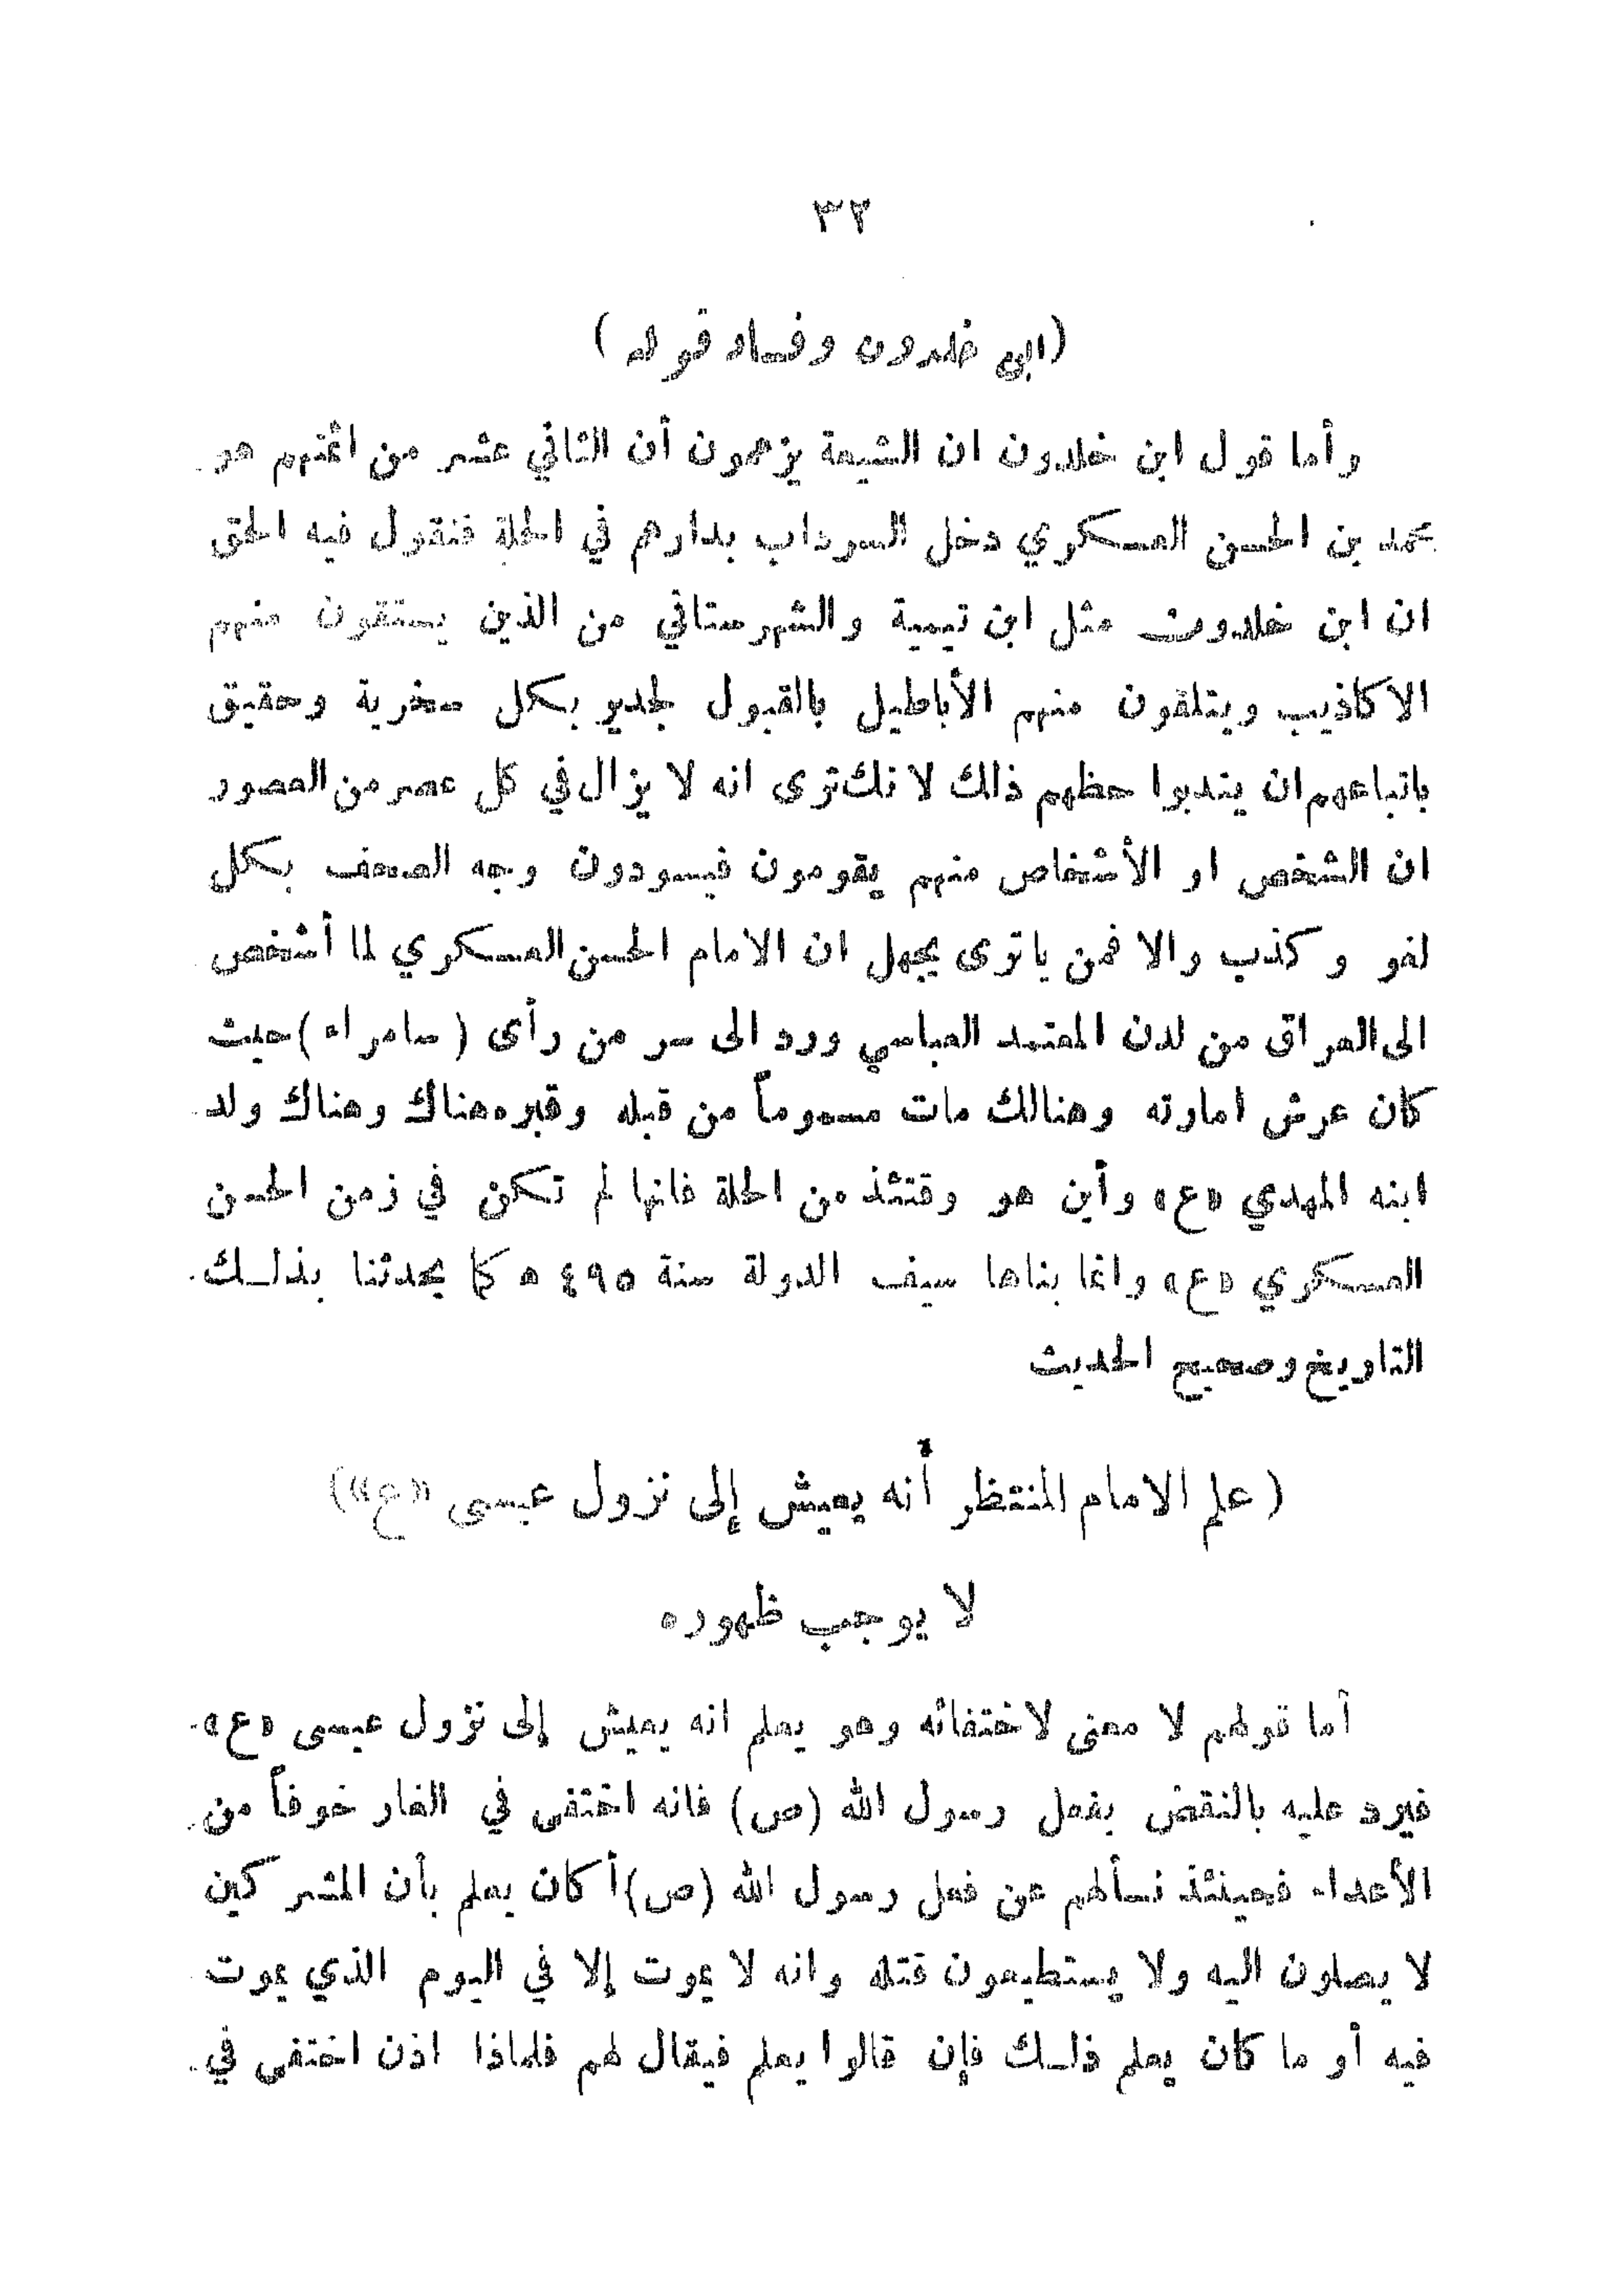 ٣٢
(ابن خلدون وفساد قوله)
وأما قول ابن خلدون ان الشيعة يزعمون أن الثاني عشر من ائمتهم هو
محمد بن الحسن العسكري دخل السرداب بدارهم في الحلة فنقول فيه الحق
ان ابن خلدون مثل ابن تيمية والشهرستاني من الذين يستقون منهم
الاكاذيب ويتلقون منهم الأباطيل بالقبول لجدير بكل سخرية وحقيق
باتباعهم ان يندبوا حظهم ذلك لانك ترى انه لا يزال في كل عصر من العصور
ان الشخص او الأشخاص منهم يقومون فيسودون وجه الصحف بكل
لغو وكذب والا فمن يا ترى يجهل ان الامام الحسن العسكري لما أشخص
الى العراق من لدن المعتمد العباسي ورد الى سر من رأى (سامراء) حيث
كان عرش امارته وهنالك مات مسموماً من قبله وقبره هناك وهناك ولد
ابنه المهدي «ع» وأين هو وقتئذ من الحلة فانها لم تكن في زمن الحسن
العسكري «ع» وانما بناها سيف الدولة سنة ٤٩٥ ه كما يحدثنا بذلك
التاريخ وصحيح الحديث
(علم الامام المنتظر أنه يعيش إلى نزول عيسى «ع»)
لا يوجب ظهوره
أما قولهم لا معنى لاختفائه وهو يعلم انه يعيش إلى نزول عيسى «ع»
فيرد عليه بالنقض بفعل رسول الله (ص) فانه اختفى في الغار خوفاً من
الأعداء فحينئذ نسألهم عن فعل رسول الله (ص) أكان يعلم بأن المشركين
لا يصلون اليه ولا يستطيعون قتله وانه لا يموت إلا في اليوم الذي يموت
فيه أو ما كان يعلم ذلك فإن قالوا يعلم فيقال لهم فلماذا اذن اختفى في